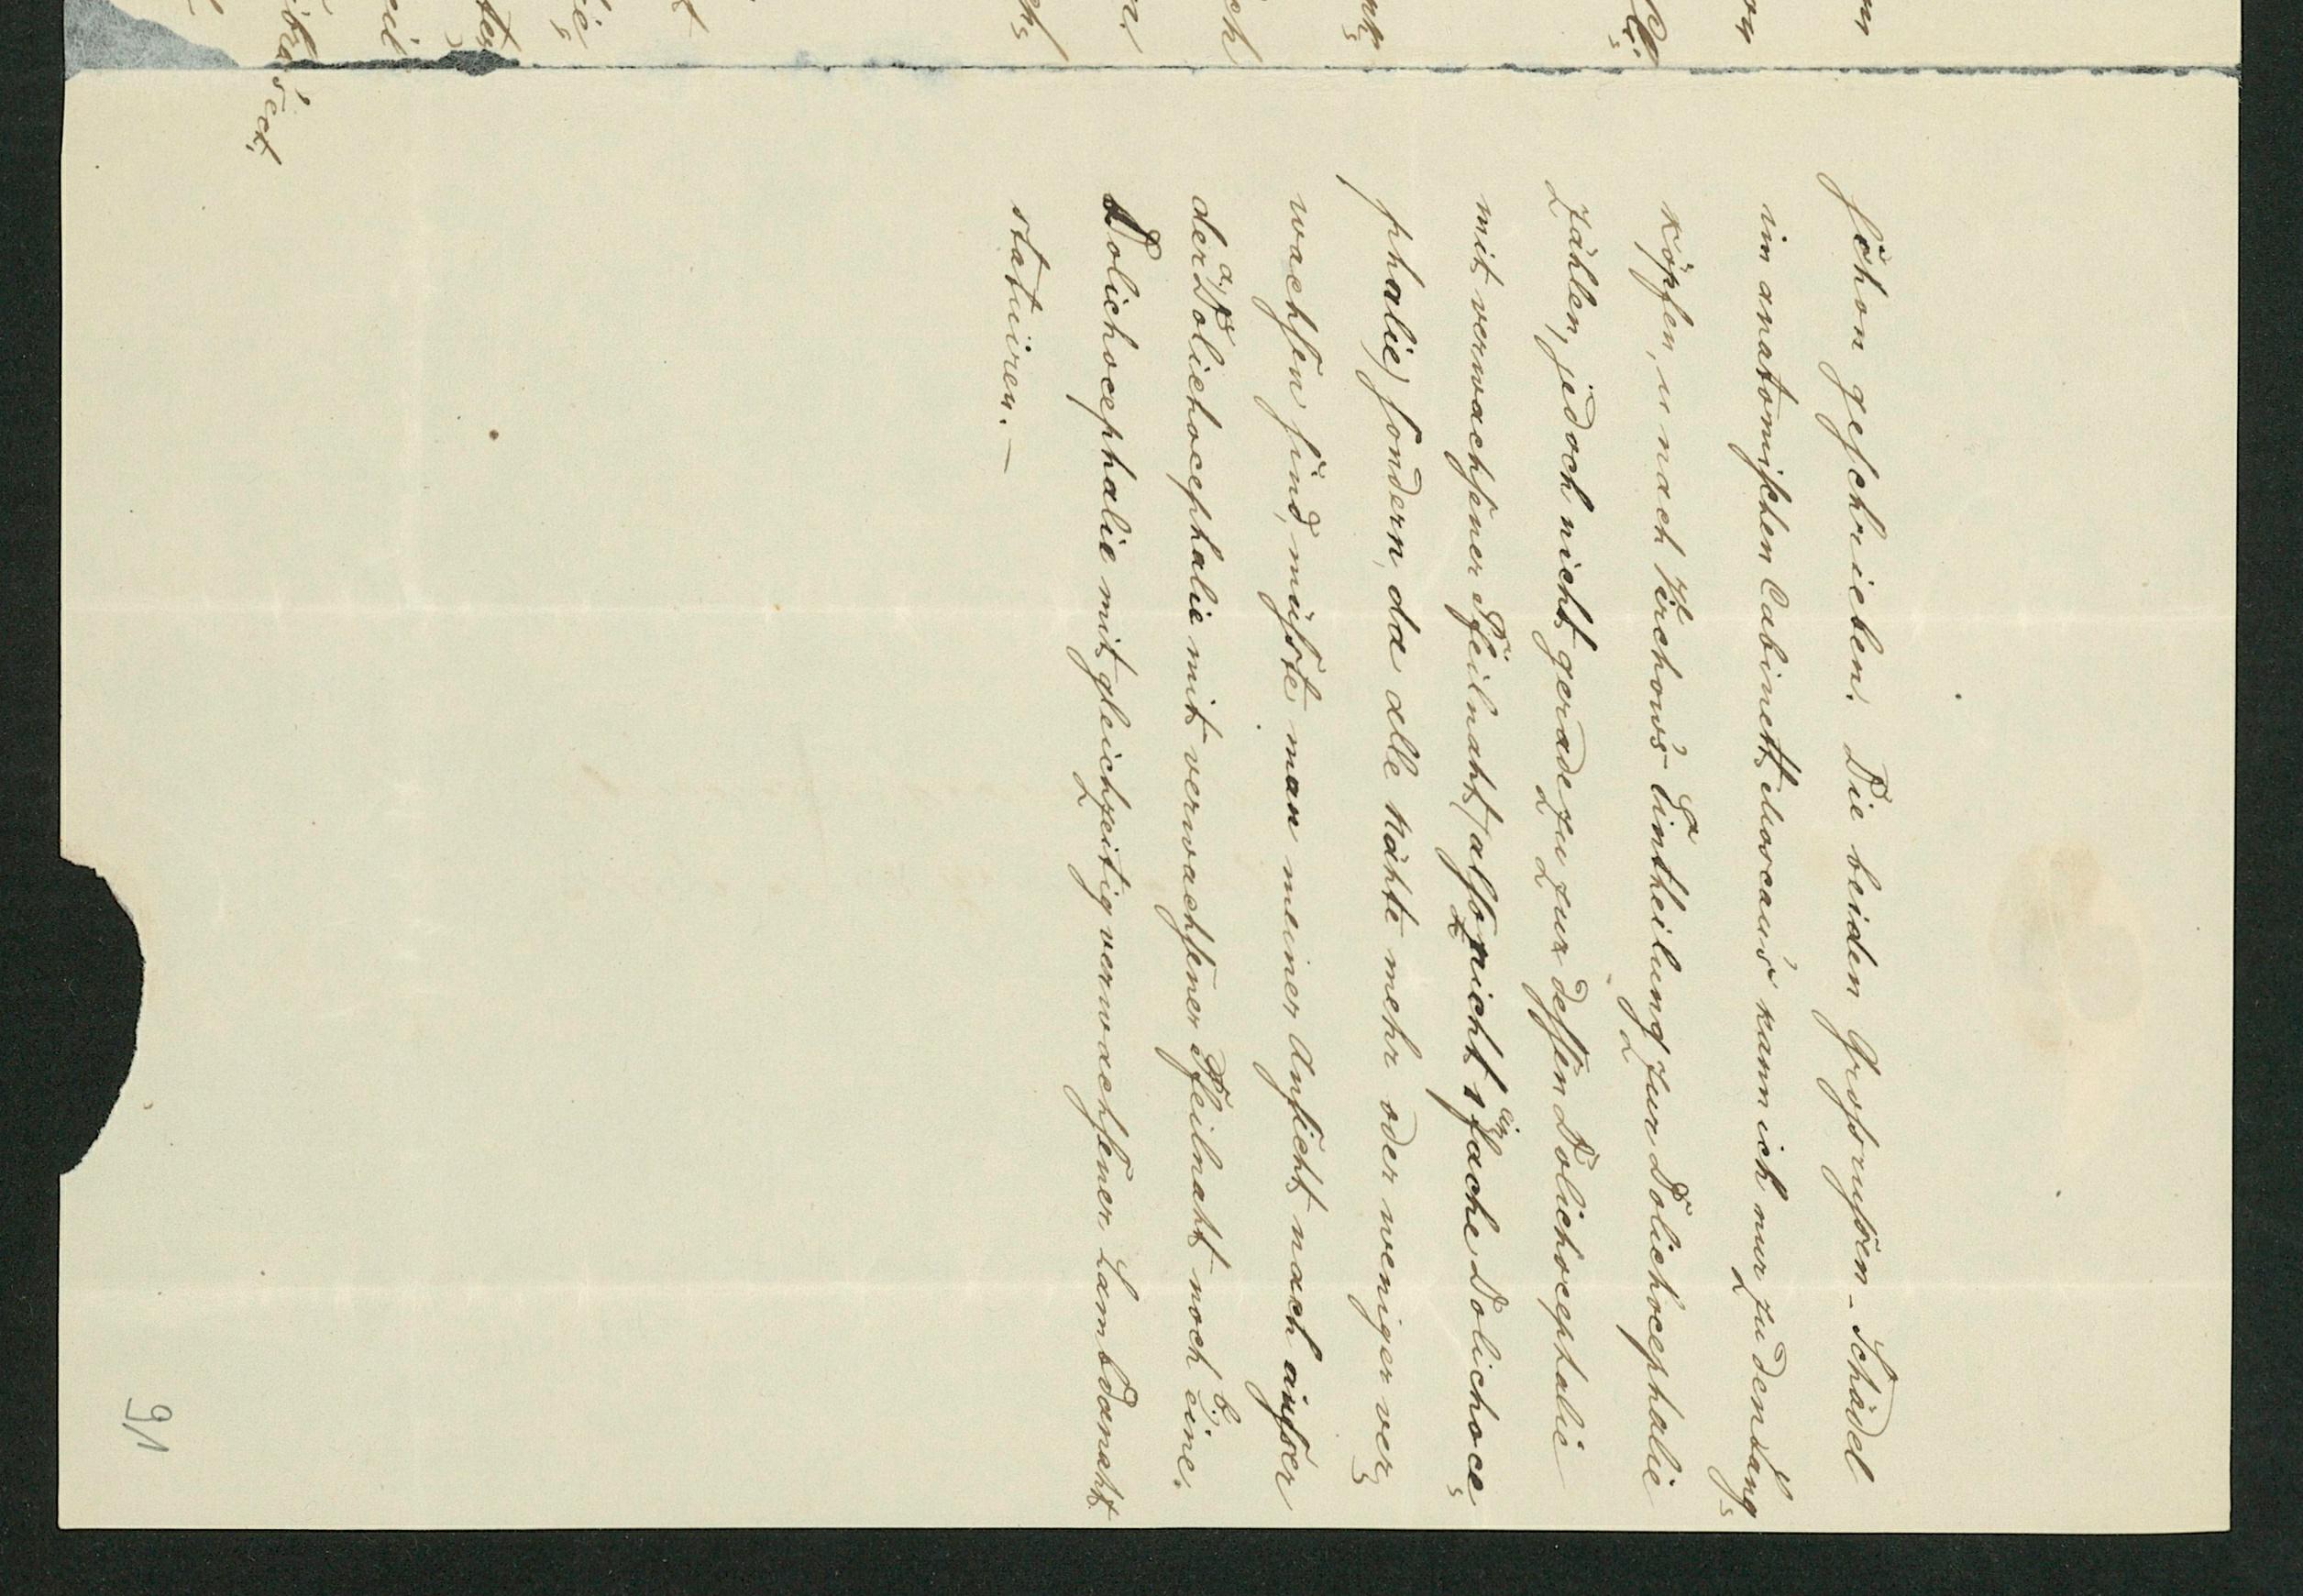 schon geschrieben. Die beiden Großrussen-Schädel
im anatomischen Cabinett Moscau's kann ich nur zu den Lang-
köpfen, u nach Virchow's Eintheilung zur Dolichocephalie
zählen, jedoch nicht geradezu zur dessen Dolichocephalie
mit verwachsener Pfeilnaht, (also nicht 1 ein fache Dolichoce-
phalie) sondern, da alle Nähte mehr oder weniger ver-
wachsen sind, müßte man meiner Ansicht nach außer
der a, Dolichocephalie mit verwachsener Pfeilnaht noch b, eine
Dolichocephalie mit gleichzeitig verwachsener Lambdanaht
statuiren. —
91